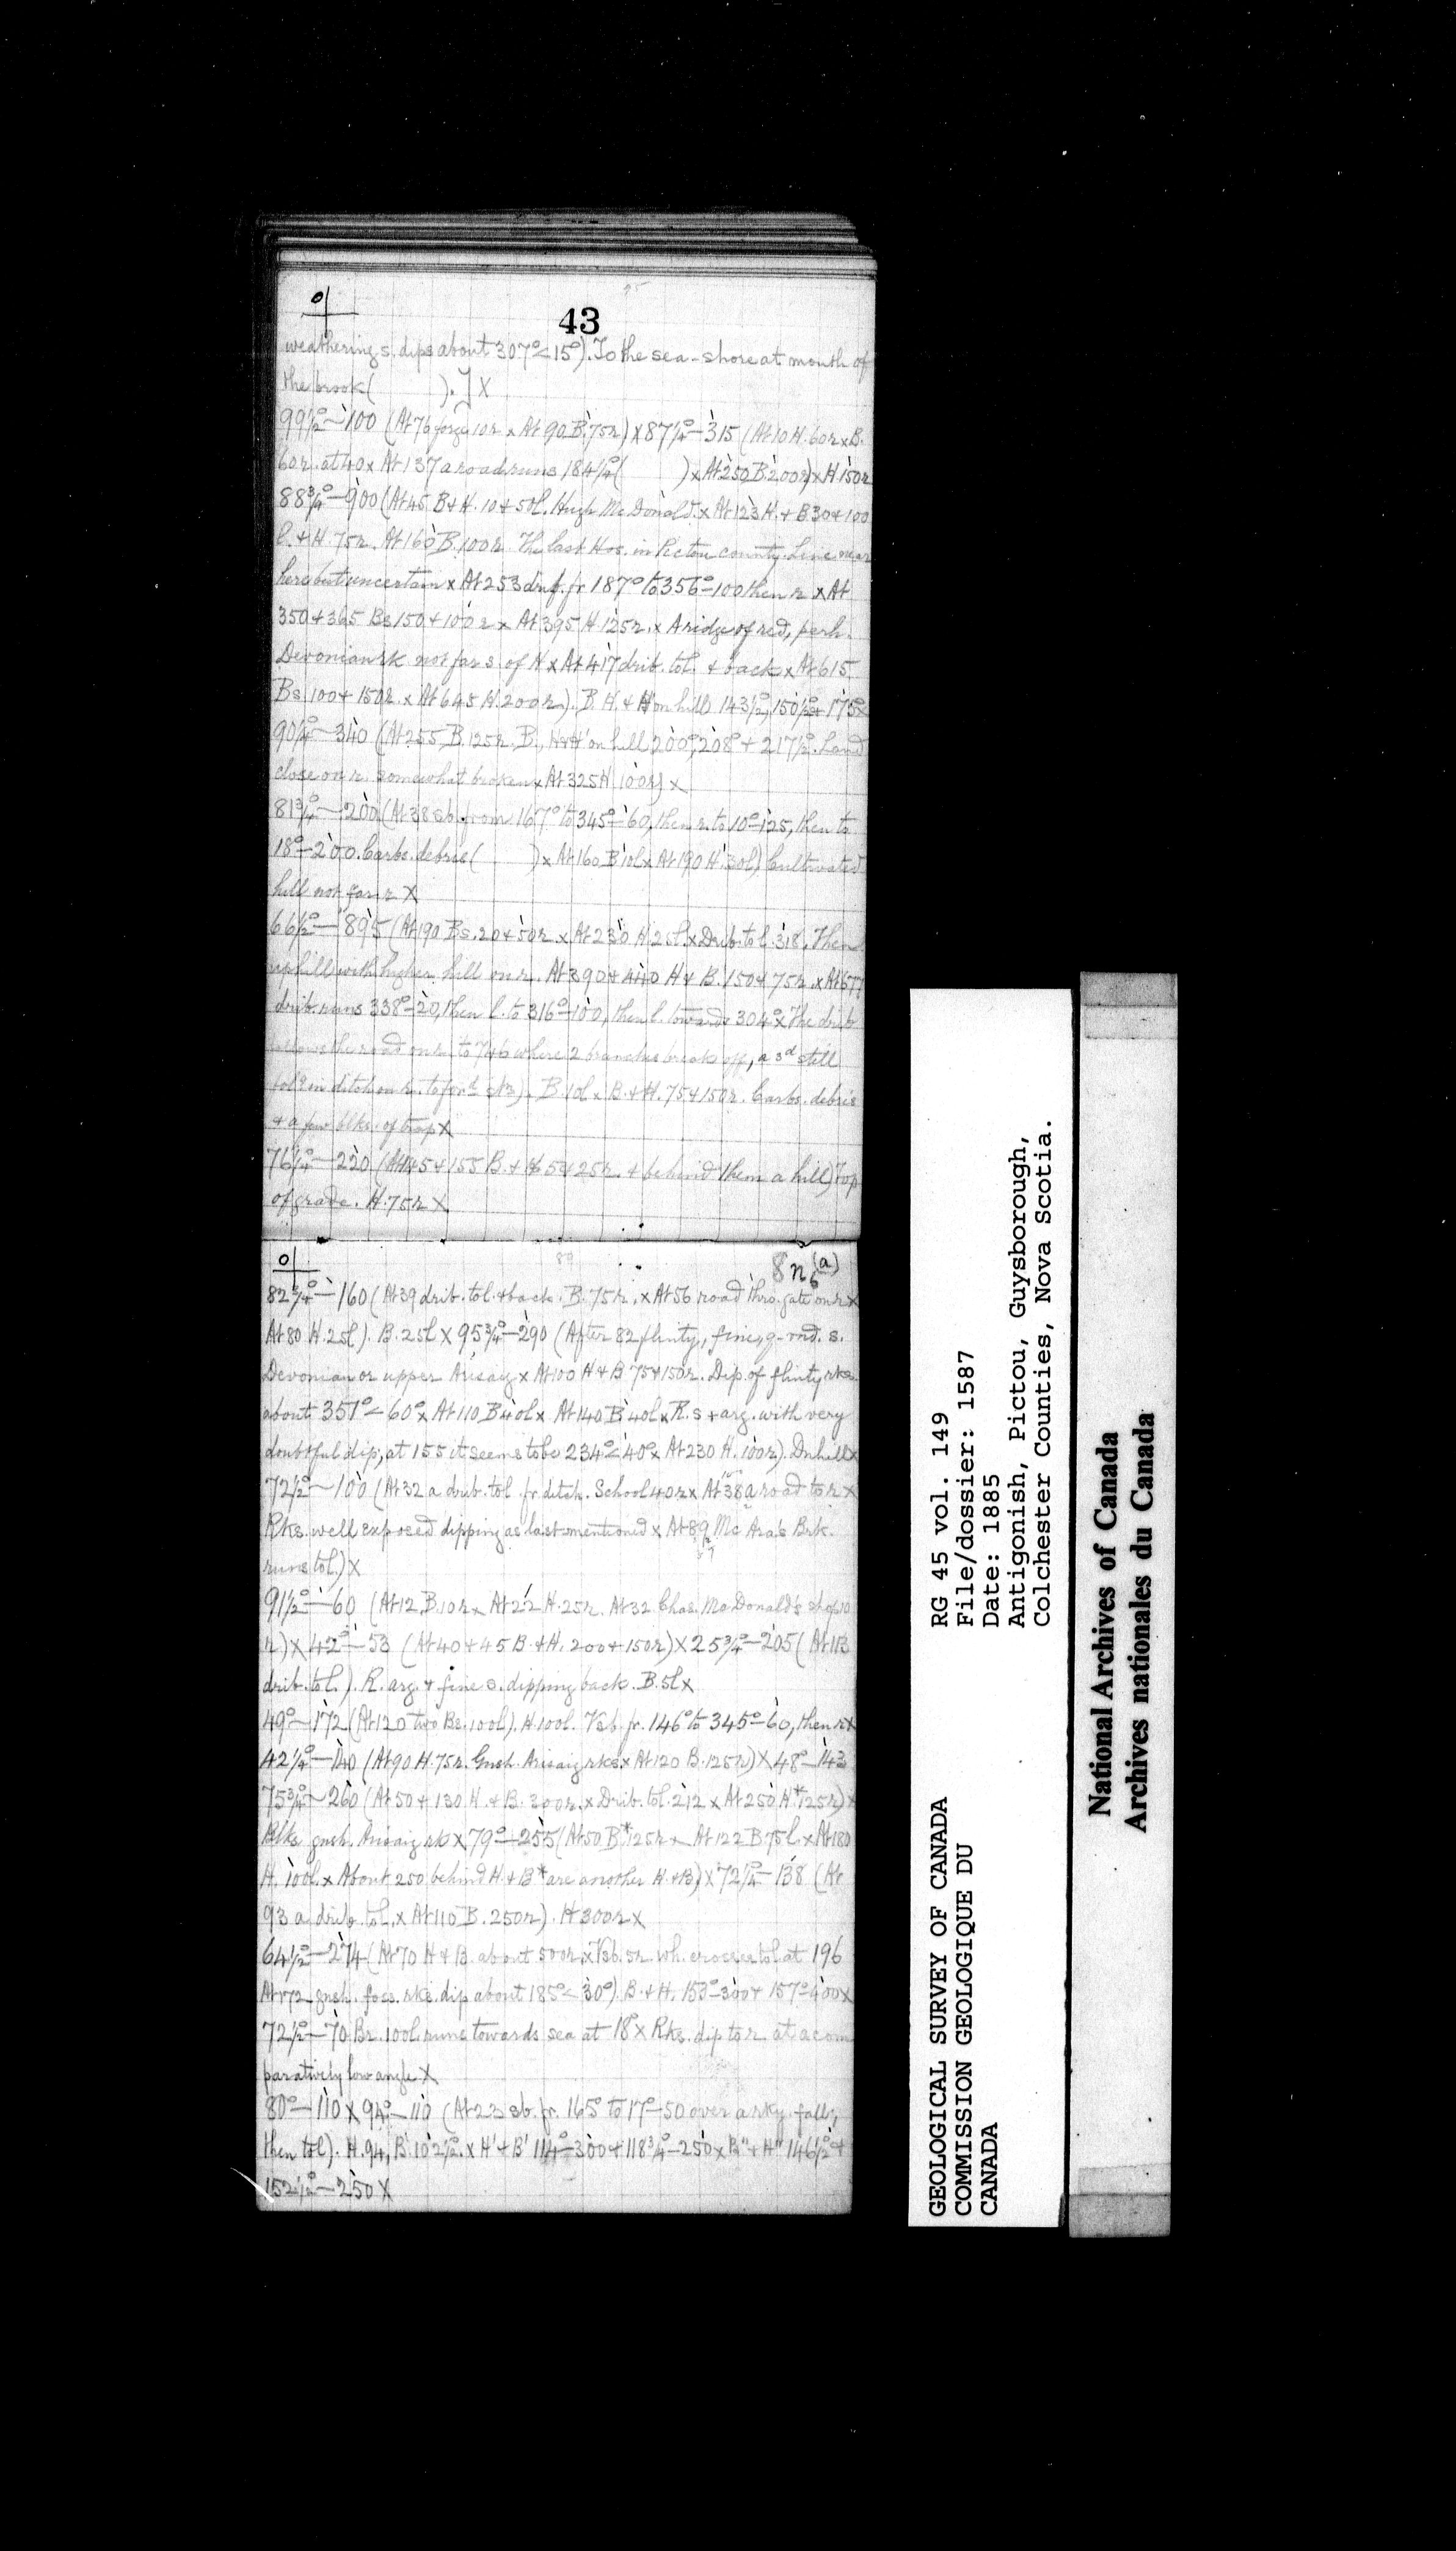 43
weathering s. dips about 307°<15°). To the sea-shore at mouth of
the brook ( ). ] X
99½°—100 (At 76 forge 10r x At 90 B. 75r) x 87¼°—315 (At 10 H. 60r x B.
60r. at 40 x At 137 a road runs 184¼ ( ) x At 250 B 200r) x H 150r
88¾°—900 (At 45 B + H. 10 + 50l. Hugh McDonald. x At 123 H. + B 30 + 100
l. + H 75r. At 160 B. 100r. The last Hos. in Pictou county. Line near
here but uncertain x At 253 drib. fr 187° to 356°—100 then r x At
350 + 365 Bs 150 + 100r x At 395 H 125r. x A ridge of red, perh.
Devonian rk not far s. of H x At 417 drib. tol. + back x At 615
Bs 100 + 150r. x At 645 H. 200r). B. H. + H' on hill 143½°, 150½° + 175° x
90¼°—340 (At 255 B. 125r. B., H + H' on hill 200°, 208° + 217½°. Land
close on r. somewhat broken x At 325 H 100r) x
81¾°—200 (At 38 sb. from 167° to 345°—60, then r. to 10°—125, then to
18°—200. Carbs. debris ( ) x At 160 B 10l x At 190 H. 30l) Cultivated
hill not far r X
66½°—895 (At 190 Bs. 20 + 50r x At 230 H 25l. x Drib. tol. 318. Then
uphill with higher hill on r. At 390 + 440 H + B. 150 + 75r. x At 677
drib. runs 338°—20, then l. to 316°—100, then l. towards 304° x The drib
follows the road on r. to 746 where 2 branches break off, a 3d still
in ditch on r. to B. 10l x B. + H. 75 + 150r. Carbs. debris
+ a few blks. of trap X
76¼°—220 (At 145 + 155 B. + H 5 + 25r. + behind them a hill) Top
of grade. H. 75r X
8n6(a)
82¾°—160 (At 39 drib. tol. + back. B. 75r. x At 56 road thro. gate on r x
At 80 H. 25l). B. 25l X 95¾°—290 (After 82 flinty, fine, g-rnd. s.
Devonian or upper Arisaig x At 100 H + B 75 + 150r. Dip of flinty rks.
about 351°<60° x At 110 B 40l x At 140 B 40l x R. s + arg. with very
doubtful dip; at 155 it seems to be 234°<40° x At 230 H. 100r). Dnhill x
72½°—100 (At 32 a drib. tol. fr ditch. School 40r x At 38 a road to r x
Rks. well exposed dipping as last mentioned x At 89 Mc Ara's Brk.
runs tol.) X
91½°—60 (At 12 B. 10r x At 22 H. 25r. At 32 Chas. McDonald's shop 10
r) X 42°—53 (At 40 + 45 B. + H. 200 + 150r) X 25¾°—205 (At 113
drib. tol.). R. arg. + fine s. dipping back. B. 5l x
49°—172 (At 120 two Bs. 100l). H. 100l. Vsb. fr. 146° to 345°—60, then r x
42¼°—140 (At 90 H. 75r. Gnsh. Arisaig rks. x At 120 B. 125r) X 48°—143
75¾°—260 (At 50 + 130 H. + B. 300r. x Drib. tol. 212 x At 250 H* 125r) x
Blks gnsh. Arisaig rk X 79°—255 (At 50 B* 125r x At 122 B 75l. x At 180
H. 100l. x About 250 behind H + B* are another H. + B) X 72¼°—138 (At
93 a drib. tol. x At 110 B. 250r). H 300r X
64½°—274 (At 70 H + B. about 500r. x Vsb. 5r. wh. crosses tol at 196
At 172 gnsh. foss. rks. dip about 185°<30°) B. + H. 153°—300 + 157°—400 x
72½°—70 Br. 100l. runs towards sea at 18° x Rks. dip to r. at a com
paratively low angle X
80°—110 X 94°—110 (At 23 sb. fr. 165° to 17°—50 over a rky. fall,
then tol). H. 94, B. 102½. x H' + B' 114°—300 + 118¾°—250 x B" + H" 146½° +
152½°—250 X
RG 45 vol. 149
File/dossier: 1587
Date: 1885
Antigonish, Pictou, Guysborough,
Colchester Counties, Nova Scotia.
GEOLOGICAL SURVEY OF CANADA
COMMISSION GEOLOGIQUE DU
CANADA
National Archives of Canada
Archives nationales du Canada